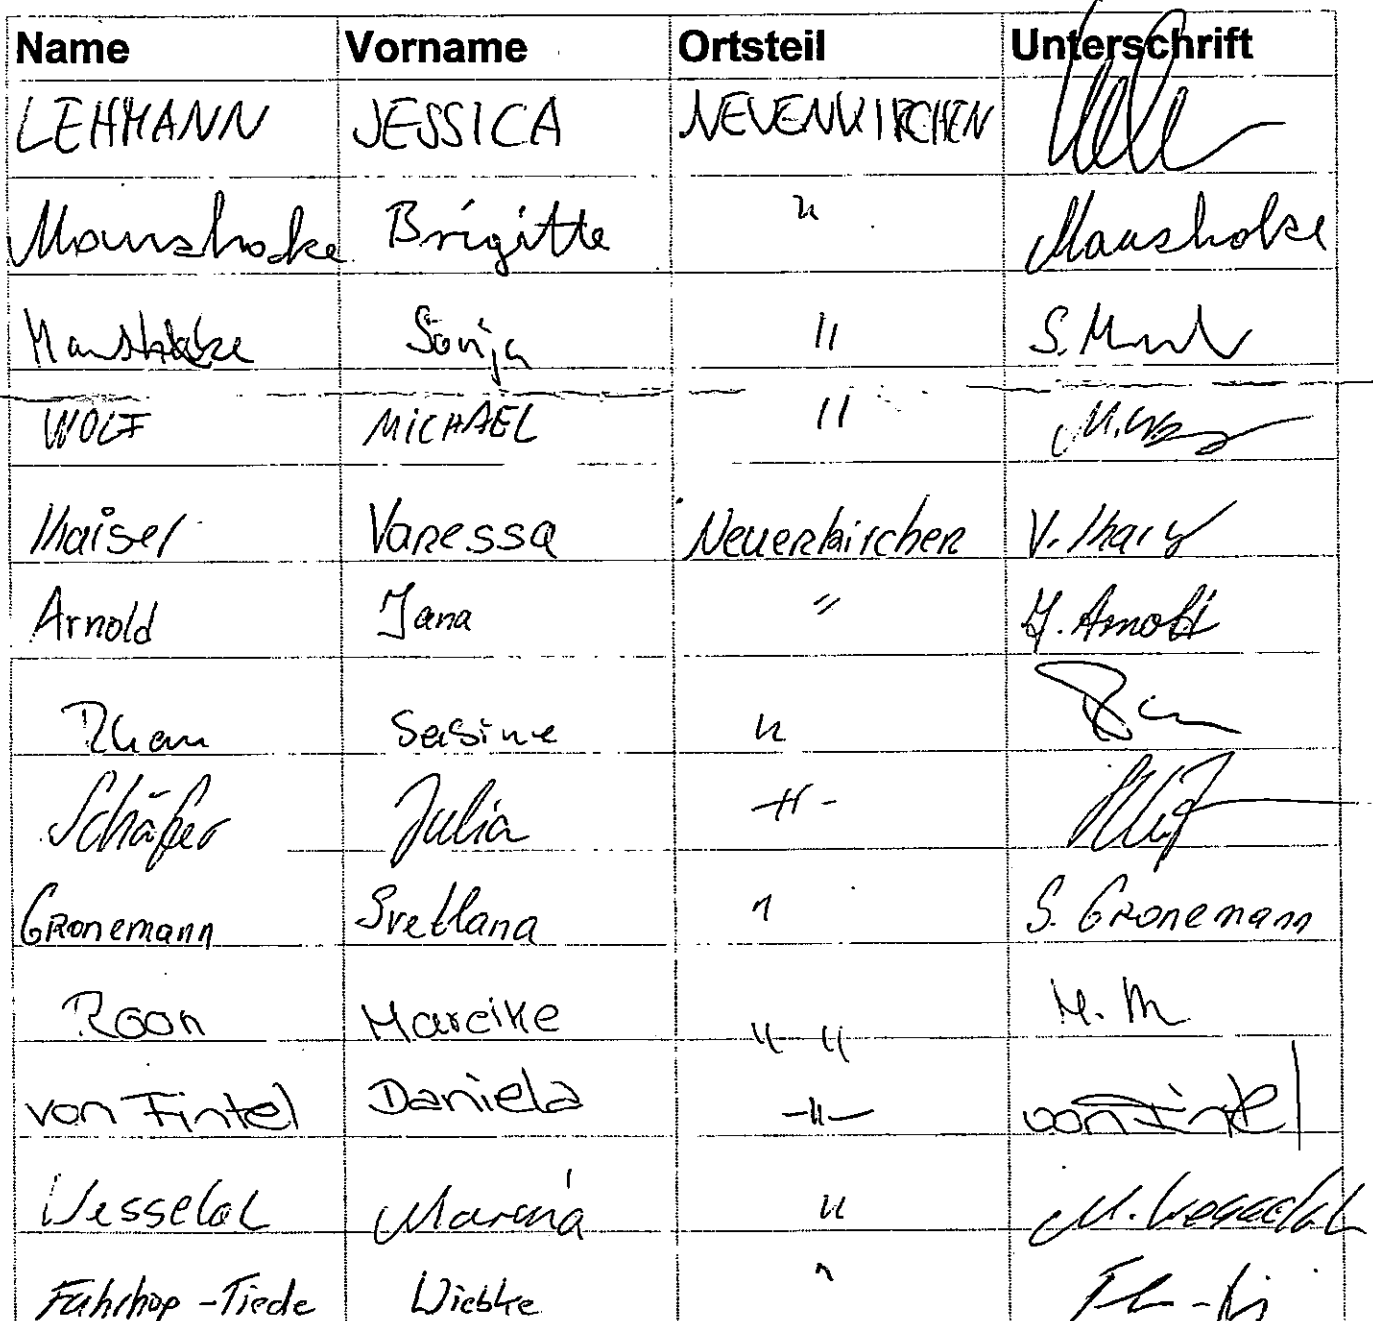 Name Vorname Ortsteil Unterschrift
LEHMANN JESSICA NEUENKIRCHEN
Maushake Brigitte " Maushake
Maushake Sonja " S.
WOLF MICHAEL " M.
Kaiser Vanessa Neuenkirchen V.
Arnold Jana " J. Arnold
"
Schäfer Julia -"-
Gronemann Svetlana " S. Gronemann
Roon Mareike " M.
von Fintel Daniela -"- von Fintel
Wesselak "  M. Wesselak
Fuhrhop-Tiede Wiebke "